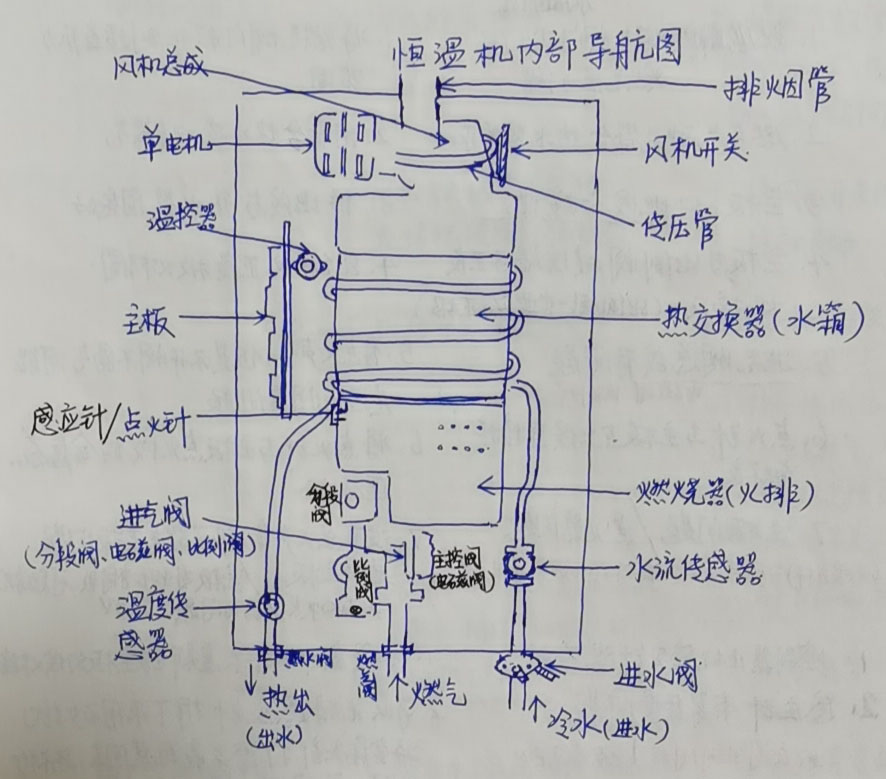 恒温机内部导航图
风机总成
排烟管
单电机
风机开关
温控器
主板
热交换器(水箱)
感应针/点火针
分段
阀
燃烧器(火排)
进气阀
(分段阀、电磁阀、比例阀)
比例阀
主控阀
(电磁阀)
水流传感器
温度传
感器
热水阀
进水阀
↓热出
(出水)
↑燃气
↑冷水(进水)